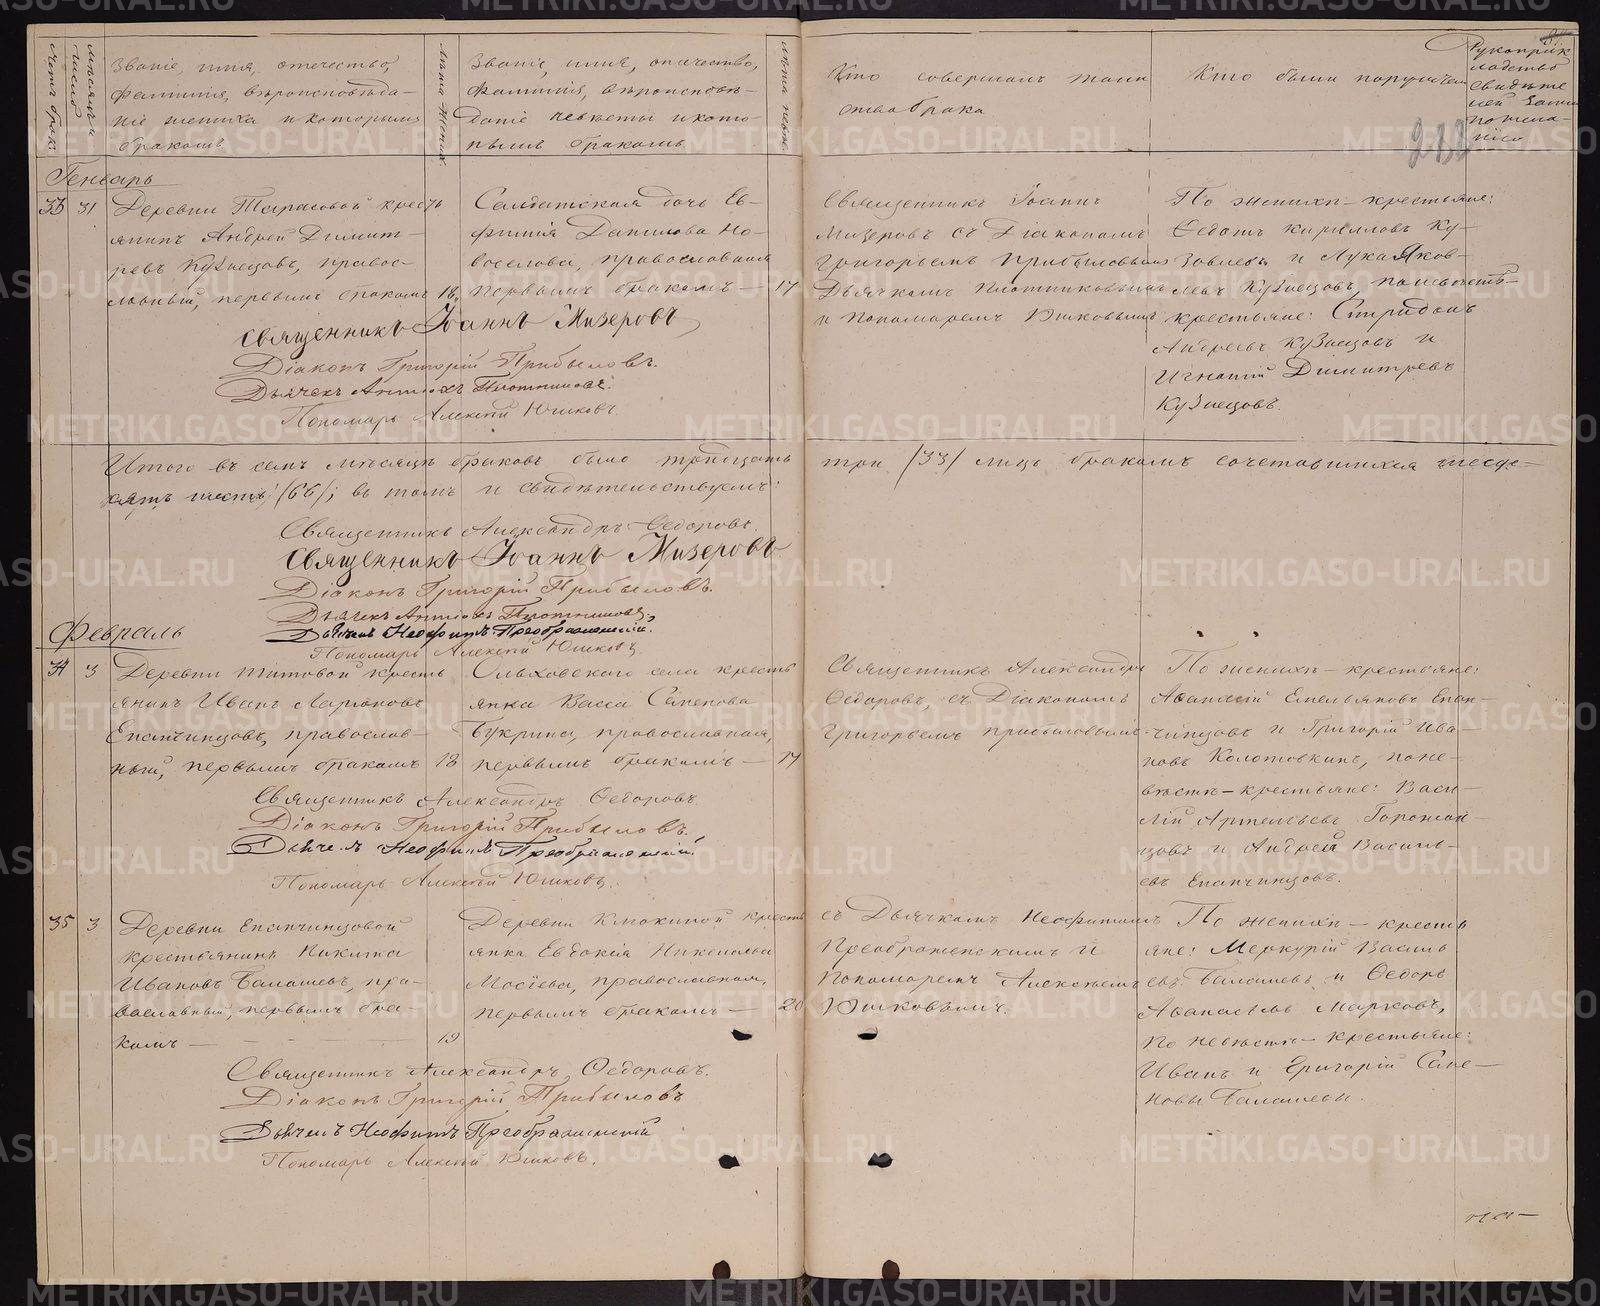 Счетъ брак.
Мѣсяцъ и число
Званіе, имя, отечество,
фамилія, вѣроисповѣда-
ніе жениха и которымъ
бракомъ
Лѣта Жених.
Званіе, имя, отчество,
фамилія, вѣроисповѣ-
даніе невѣсты и кото-
рымъ бракомъ
Лѣта невѣс.
Кто совершалъ таин
ство брака
Кто были поручител
Рукоприк
ладство
свидѣте
лей
по жела-
нію
Генварь
33 31 Деревни Тарасовой кресть
янинъ Андрей Димит-
ріевъ Кузнецовъ, правос-
лавный, первымъ бракомъ 18.
Солдатская дочь Ев-
фимія Данилова Но-
воселова, православная
первымъ бракомъ — 17
Священникъ Іоаннъ
Мизеровъ съ Діакономъ
Григорьемъ Прибыловымъ
Дьячкомъ Плотниковымъ
и Пономаремъ Юшковымъ
По женихѣ — крестьяне:
Ѳедотъ Кирилловъ Ку-
и Лука Яков-
левъ Кузнецовъ, по невѣстѣ-
крестьяне: Спиридонъ
Андреевъ Кузнецовъ и
Игнатій Димитревъ
Кузнецовъ.
Священникъ Іоаннъ Мизеровъ
Діаконъ Григорій Прибыловъ.
Дьячекъ Антіохъ Плотниковъ.
Пономарь Алексѣй Юшковъ.
Итого въ семъ мѣсяцѣ браковъ было тритцать три /33/ лицъ бракомъ сочетавшихся шесде-
сятъ шесть /66/; въ томъ и свидѣтельствуемъ:
Священникъ Александръ Ѳедоровъ.
Священникъ Іоаннъ Мизеровъ
Діаконъ Григорій Прибыловъ.
Дьячекъ Антіохъ Плотниковъ.
Дьячекъ Неофитъ Преображенскій.
Пономарь Алексѣй Юшковъ
Февраль
34 3 Деревни Титовой кресть
янинъ Иванъ Ларіоновъ
Епанчинцовъ, православ-
ный, первымъ бракомъ 18
Ольховскаго села кресть
янка Васса Семенова
Букрина, православная,
первымъ бракомъ — 17
Священникъ Александръ
Ѳедоровъ, съ Діакономъ
Григорьемъ Прибыловымъ
По женихѣ — крестьяне:
Аѳанасій Емельяновъ Епан-
чинцовъ и Григорій Ива-
новъ Колотовкинъ, по не-
вѣстѣ — крестьяне: Васи-
лій Артемьевъ Горожан-
цовъ и Андрей Василь-
евъ Епанчинцовъ.
Священникъ Александръ Ѳедоровъ
Діаконъ Григорій Прибыловъ.
Дьячекъ Неофитъ Преображенскій.
Пономарь Алексѣй Юшковъ.
35 3 Деревни Епанчинцовой
крестьянинъ Никита
Ивановъ Балашевъ, пра-
вославный, первымъ бра-
комъ — 19
Деревни Клюкиной кресть
янка Евдокія Николаева
Мосіева, православная,
первымъ бракомъ — 20
съ Дьячкомъ Неофитомъ
Преображенскимъ и
Пономаремъ Алексѣемъ
Юшковымъ.
По женихѣ — кресть
яне: Меркурій Василь
евъ Балашевъ и Ѳедоръ
Аѳанасьевъ Марковъ,
по невѣстѣ — крестьяне:
Иванъ и Григорій Семе-
новы Балашевы.
Священникъ Александръ Ѳедоровъ.
Діаконъ Григорій Прибыловъ
Дьячекъ Неофитъ Преображенскій
Пономарь Алексѣй Юшковъ.
METRIKI.GASO-URAL.RU